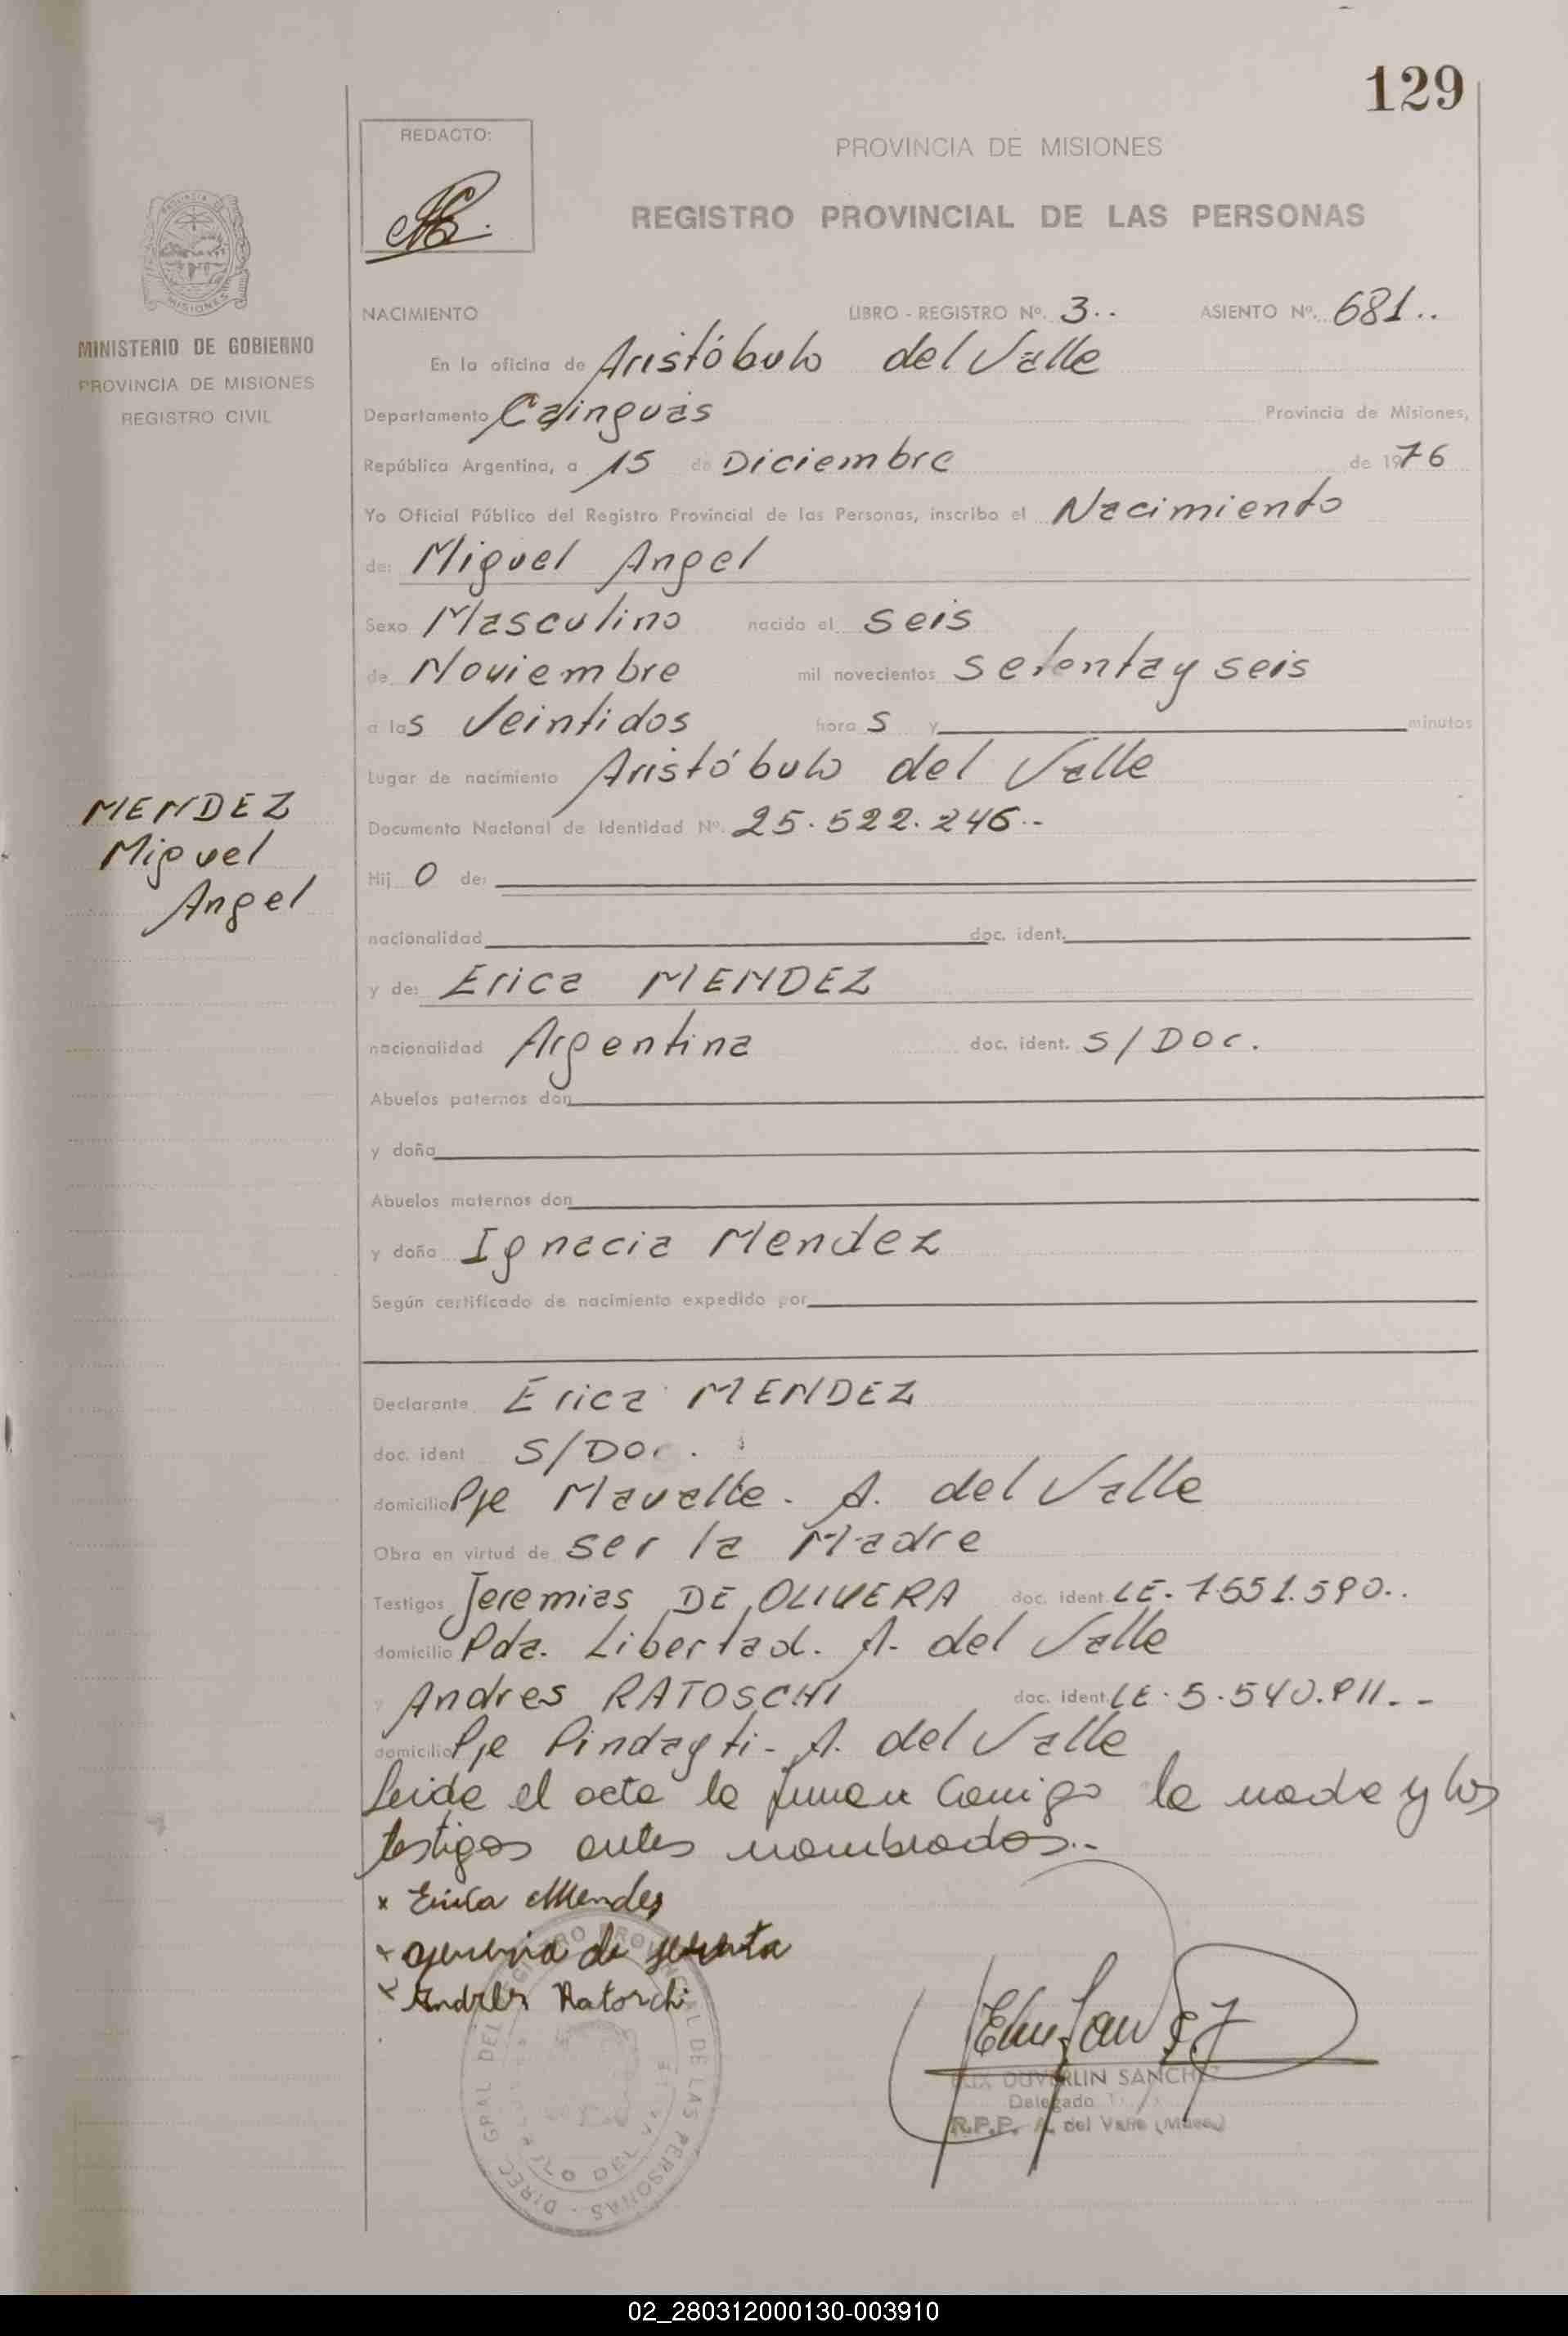 129
REDACTO:
PROVINCIA DE MISIONES
REGISTRO PROVINCIAL DE LAS PERSONAS
MINISTERIO DE GOBIERNO
PROVINCIA DE MISIONES
REGISTRO CIVIL
NACIMIENTO LIBRO - REGISTRO Nº. 3.. ASIENTO Nº. 681..
En la oficina de Aristóbulo del Valle
Departamento Cainguás Provincia de Misiones,
República Argentina, a 15 de Diciembre de 1976
Yo Oficial Público del Registro Provincial de las Personas, inscribo el Nacimiento
de: Miguel Angel
Sexo Masculino nacido el seis
de Noviembre mil novecientos setenta y seis
a las Veintidos horas y minutos
Lugar de nacimiento Aristóbulo del Valle
MENDEZ
Miguel
Angel
Documento Nacional de Identidad Nº. 25.522.246.-
Hijo de:
nacionalidad doc. ident.
y de: Erica MENDEZ
nacionalidad Argentina doc. ident. S/Doc.
Abuelos paternos don
y doña
Abuelos maternos don
y doña Ignacia Mendez
Según certificado de nacimiento expedido por
Declarante Erica MENDEZ
doc. ident S/Doc.
domicilio Pje Mavalle. A. del Valle
Obra en virtud de ser la Madre
Testigos Jeremias DE OLIVERA doc. ident LE-7.551.590..
domicilio Pda. Libertad. A. del Valle
y Andres RATOSCHI doc. ident. LE.5.540.911.--
domicilio Pje Pindayti- A. del Valle
Leida el acta la firman conmigo la madre y los
testigos antes nombrados..-
x Erica Mendes
x de
x Andres Ratoschi
DIREC. GRAL. DEL REGISTRO PROVINCIAL DE LAS PERSONAS
DUVERLIN SANCHEZ
Delegado
R.P.P. A. del Valle (Mnes.)
02_280312000130-003910